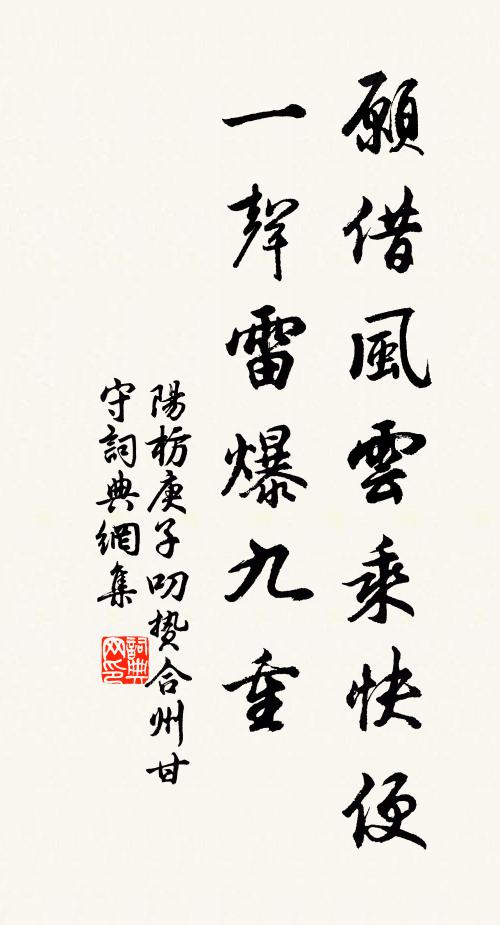 願借風雲乘快便
一聲雷爆九重
陽枋庚子叨贄合州甘
守詞典網集
詞典
网印